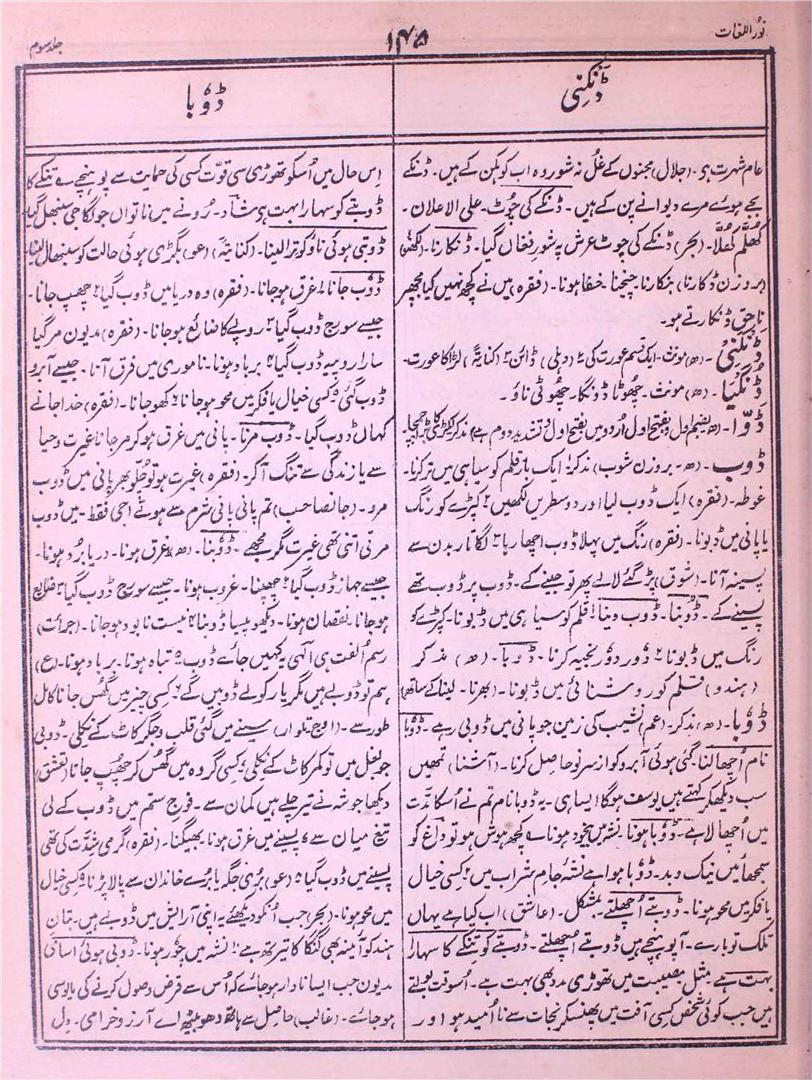 نور اللغات
۱۴۵
جلد سوم
ڈنکنی
ڈوبا
عام شہرت ہی۔ (جلال) مجنوں کے غُل نہ شور وہ اب کوہکن کے ہیں۔ ڈنکے
بجے ہوئے مرے دیوانے پن کے ہیں۔ ڈنکے کی چوٹ۔ علی الاعلان۔
کھُلّم کھُلّا۔ (بحر) ڈنکے کی چوٹ عرش پہ شورِ فغاں گیا۔ ڈنکارنا۔ (لکھنؤ)
(بر وزن ڈکارنا) ہنکارنا۔ چیخنا۔ خفا ہونا۔ (فقرہ) میں نے کچھ نہیں کیا مجھپر
ناحق ڈنکارتے ہو۔
ڈنکنی۔ (ھ) مونث۔ ایک قسم عورت کی ۲ (دہلی) ڈائن ۳ (کنایۃً) لڑاکا عورت۔
ڈُنگیا۔ (ھ) مونث۔ چھوٹا ڈونگا۔ چھوٹی ناؤ۔
ڈوّا۔ (ھ۔ بضم اول و بفتح اول اُردو میں بفتح اول و تشدید دوم ہے) مذکر لکڑی کا بڑا چمچا۔
ڈوب۔ (ھ۔ بروزن شوب) مذکر ۱ ایک بار قلم کو سیاہی میں تر کرنا۔
غوطہ۔ (فقرہ) ایک ڈوب لیا اور دو سطریں لکھیں ۲ کپڑے کو رنگ
یا پانی میں ڈبونا۔ (فقرہ) رنگ میں پہلا ڈوب اچھا رہا ۳ لگاتار بدن سے
پسینہ آنا۔ (شوق) پڑ گئے لالے پھر تو جینے کے۔ ڈوب پر ڈوب تھے
پسینے کے۔ ڈوبنا۔ ڈوب دینا ۱ قلم کو سیاہی میں ڈبونا۔ کپڑے کو
رنگ میں ڈبونا ۲ دُور دُور بخیہ کرنا۔ ڈوبا۔ (ھ) مذکر
(ہندو) قلم کو روشنائی میں ڈبونا۔ (بھرنا۔ لینا کے ساتھ)
ڈوبا۔ (ھ) مذکر۔ (عم) نشیب کی زمین جو پانی میں ڈوبی رہے۔ ڈوبا
نام اُچھالنا۔ گئی ہوئی آبرو کو از سر نو حاصل کرنا۔ (آشنا) تمھیں
سب دیکھکر کہتے ہیں یوسف ہوگا ایسا ہی۔ یہ ڈوبا نام تم نے اُسکا مدّت
میں اُچھالا ہے۔ ڈوبا ہونا۔ نشہ میں بیخود ہونا ۔ کچھ ہوش ہو تو داغ کو
سمجھاؤں نیک و بد۔ ڈوبا ہوا ہے نشۂ جام شراب میں ۲ کسی خیال
یا فکر میں محو ہونا۔ ڈوبتے اُچھلتے۔ بمشکل۔ (عاشق) اب کیا ہے یہاں
تلک تو بارے۔ آ پہونچے ہیں ڈوبتے اُچھلتے۔ ڈوبتے کو تنکے کا سہارا
بہت ہے مثل مصیبت میں تھوڑی مدد بھی بہت ہے۔ اُسوقت بولتے
ہیں جب کوئی شخص کسی آفت میں پھنسکر نجات سے نا اُمید ہو اور
اِس حال میں اُسکو تھوڑی سی قوّت کسی کی حمایت سے پہونچے ۔ تنکے کا
ڈوبتے کو سہارا بہت ہی شاد۔ رُونے میں ناتواں جو لگا جی سنبھل گیا۔
ڈوبتی ہوئی ناؤ کو ترا لینا۔ (کنایۃً) (عو) بگڑی ہوئی حالت کو سنبھال لینا۔
ڈوب جانا ۱ غرق ہو جانا۔ (فقرہ) وہ دریا میں ڈوب گیا ۲ چھپ جانا۔
جیسے سورج ڈوب گیا ۳ روپئے کا ضائع ہو جانا۔ (فقرہ) مدیون مر گیا
سارا روپیہ ڈوب گیا ۴ برباد ہونا۔ ناموری میں فرق آنا۔ جیسے آبرو
ڈوب گئی ۵ کسی خیال یا فکر میں محو ہو جانا ۶ کھو جانا۔ (فقرہ) خدا جانے
کہاں ڈوب گیا۔ ڈوب مرنا۔ پانی میں غرق ہوکر مر جانا غیرت و حیا
سے یا زندگی سے تنگ آکر۔ (فقرہ) غیرت ہو تو چلّو بھر پانی میں ڈوب
مرو۔ (جانصاحب) تم پانی پانی شرم سے ہوئے اجی فقط۔ میں ڈوب
مرتی اتنی تھی غیرت مگر مجھے۔ ڈوبنا۔ (ھ) ۱ غرق ہونا۔ دریا برد ہونا۔
جیسے جہاز ڈوب گیا ۲ چھپنا۔ غروب ہونا۔ جیسے سورج ڈوب گیا ۳ ضایع
ہو جانا۔ نقصان ہونا۔ دیکھو پیسا ڈوبنا ۴ نیست نابود ہو جانا۔ (جرات)
رسم اُلفت ہی الٰہی یہ کہیں جائے ڈوب ۵ تباہ ہونا۔ برباد ہونا۔ (ع)
ہم تو ڈوبے ہیں مگر یار کو لے ڈوبیں گے ۶ کسی چیز میں گھُس جانا کامل
طور سے۔ (اوج تلوار) سینے میں گئی قلب و جگر کاٹ کے نکلی۔ ڈوبی
جو بغل میں تو کمر کاٹ کے نکلی ۷ کسی گروہ میں گھُس کر چھپ جانا (تعشق)
دکھا جو شہ نے تیر چلے ہیں کمان سے۔ فوجِ ستم میں ڈوب کے لی
تیغ میان سے ۸ پسینے میں غرق ہونا۔ بھیگنا۔ (فقرہ) گرمی شدّت کی تھی
پسینے میں ڈوب گیا ۹ (عو) بُری جگہ یا بُرے خاندان سے پالا پڑنا ۱۰ کسی خیال
میں محو ہونا۔ (بحر) جب اُنکو دیکھئے یہ اپنی آرایش میں ڈوبے ہیں۔ بتانِ
ہند کو آئینہ بھی گنگا کا تیرتھ ہے ۱۱ نشہ میں چور ہونا۔ ڈوبی ہوئی اسامی
مدیون جب ایسا نادار ہو جائے کہ اُس سے قرض وصول کرنے کی مایوسی
ہو جائے۔ (غالب) حاصل سے ہاتھ دھو بیٹھ اے آرزو خرامی۔ دل